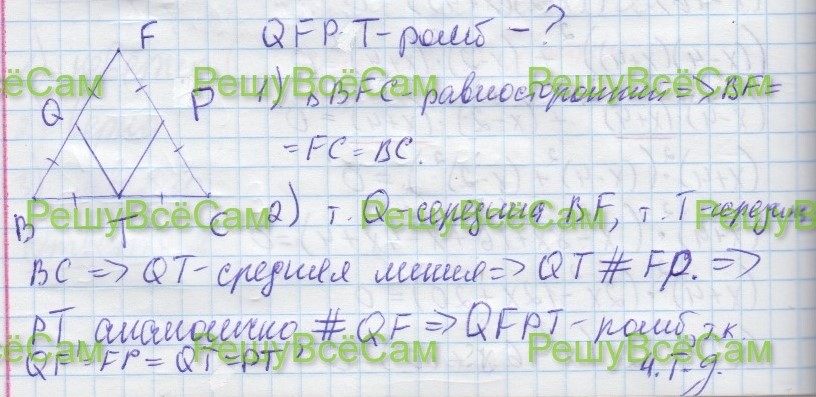 F
QFPT-ромб-?
Q
P
1) ΔBFC-равносторонний=>BF=
=FC=BC.
B
T
C
2) т. Q-середина BF, т. T-середина
BC => QT-средняя линия=> QT # FP. =>
PT аналогично # QF => QFPT-ромб, т.к.
QF=FP=QT=PT
ч.т.д.
РешуВсёСам
РешуВсёСам
РешуВсёСам
РешуВсёСам
РешуВсёСам
РешуВсёСам
РешуВсёСам